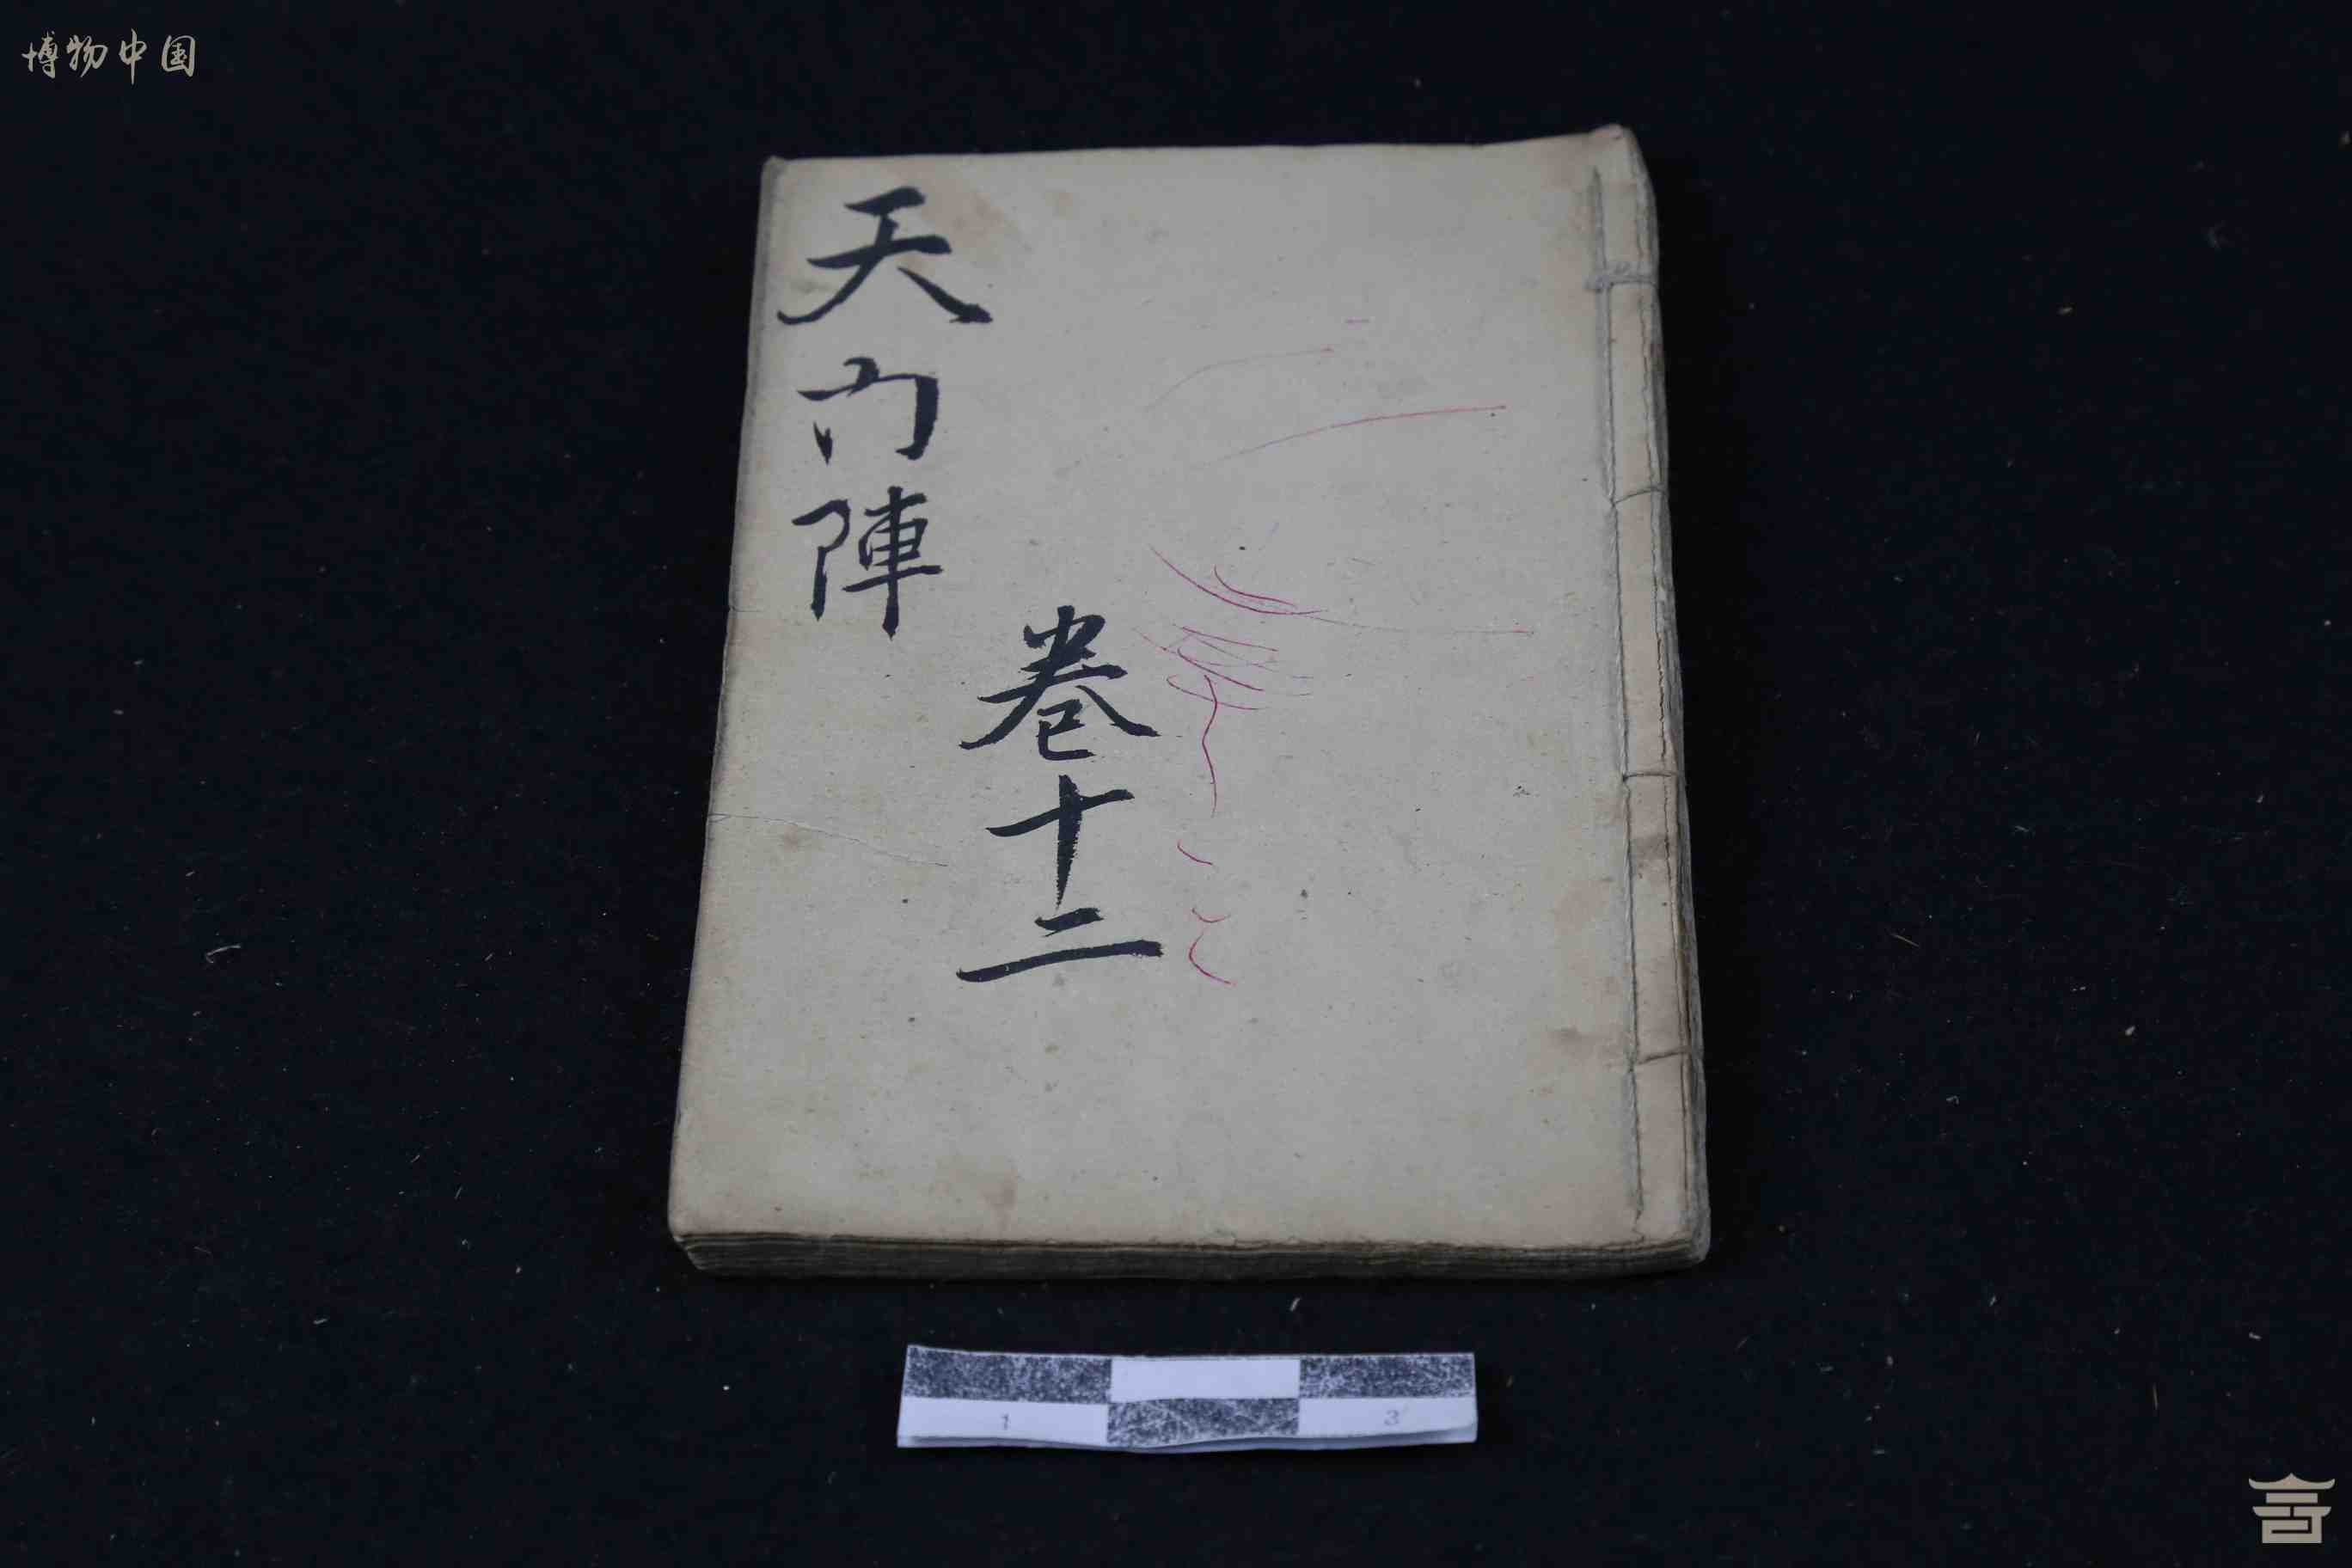 博物中国
天门陣
卷十二
1 3